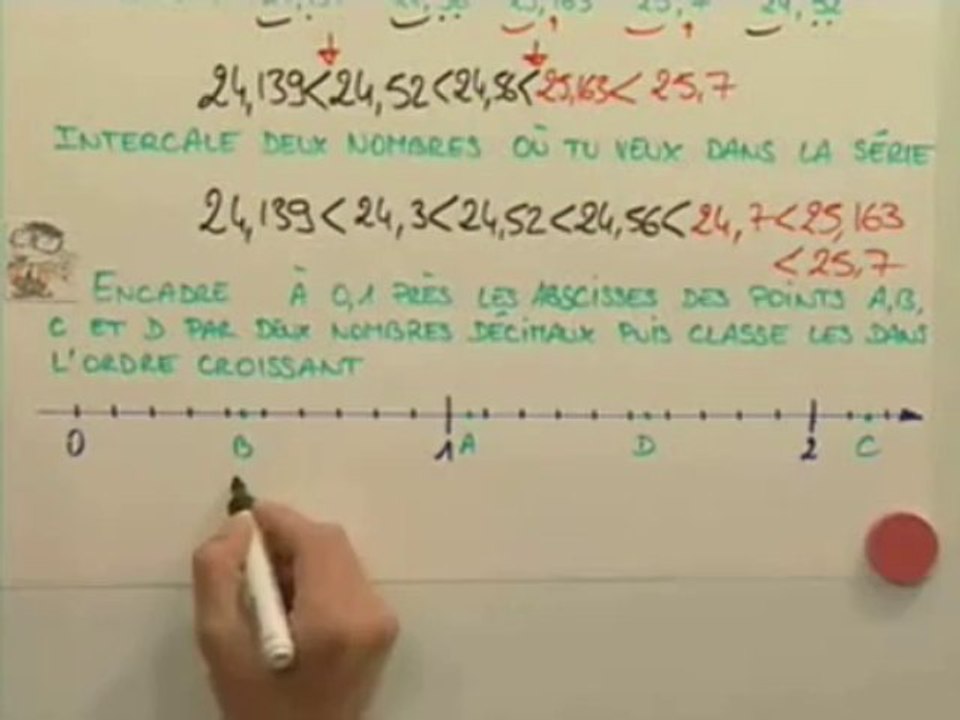 24,139<24,52<24,56<25,163<25,7
INTERCALE DEUX NOMBRES OÙ TU VEUX DANS LA SÉRIE
24,139<24,3<24,52<24,56<24,7<25,163
<25,7
ENCADRE À 0,1 PRÈS LES ABSCISSES DES POINTS A,B,
C ET D PAR DEUX NOMBRES DÉCIMAUX PUIS CLASSE LES DANS
L'ORDRE CROISSANT
0 B 1 A D 2 C